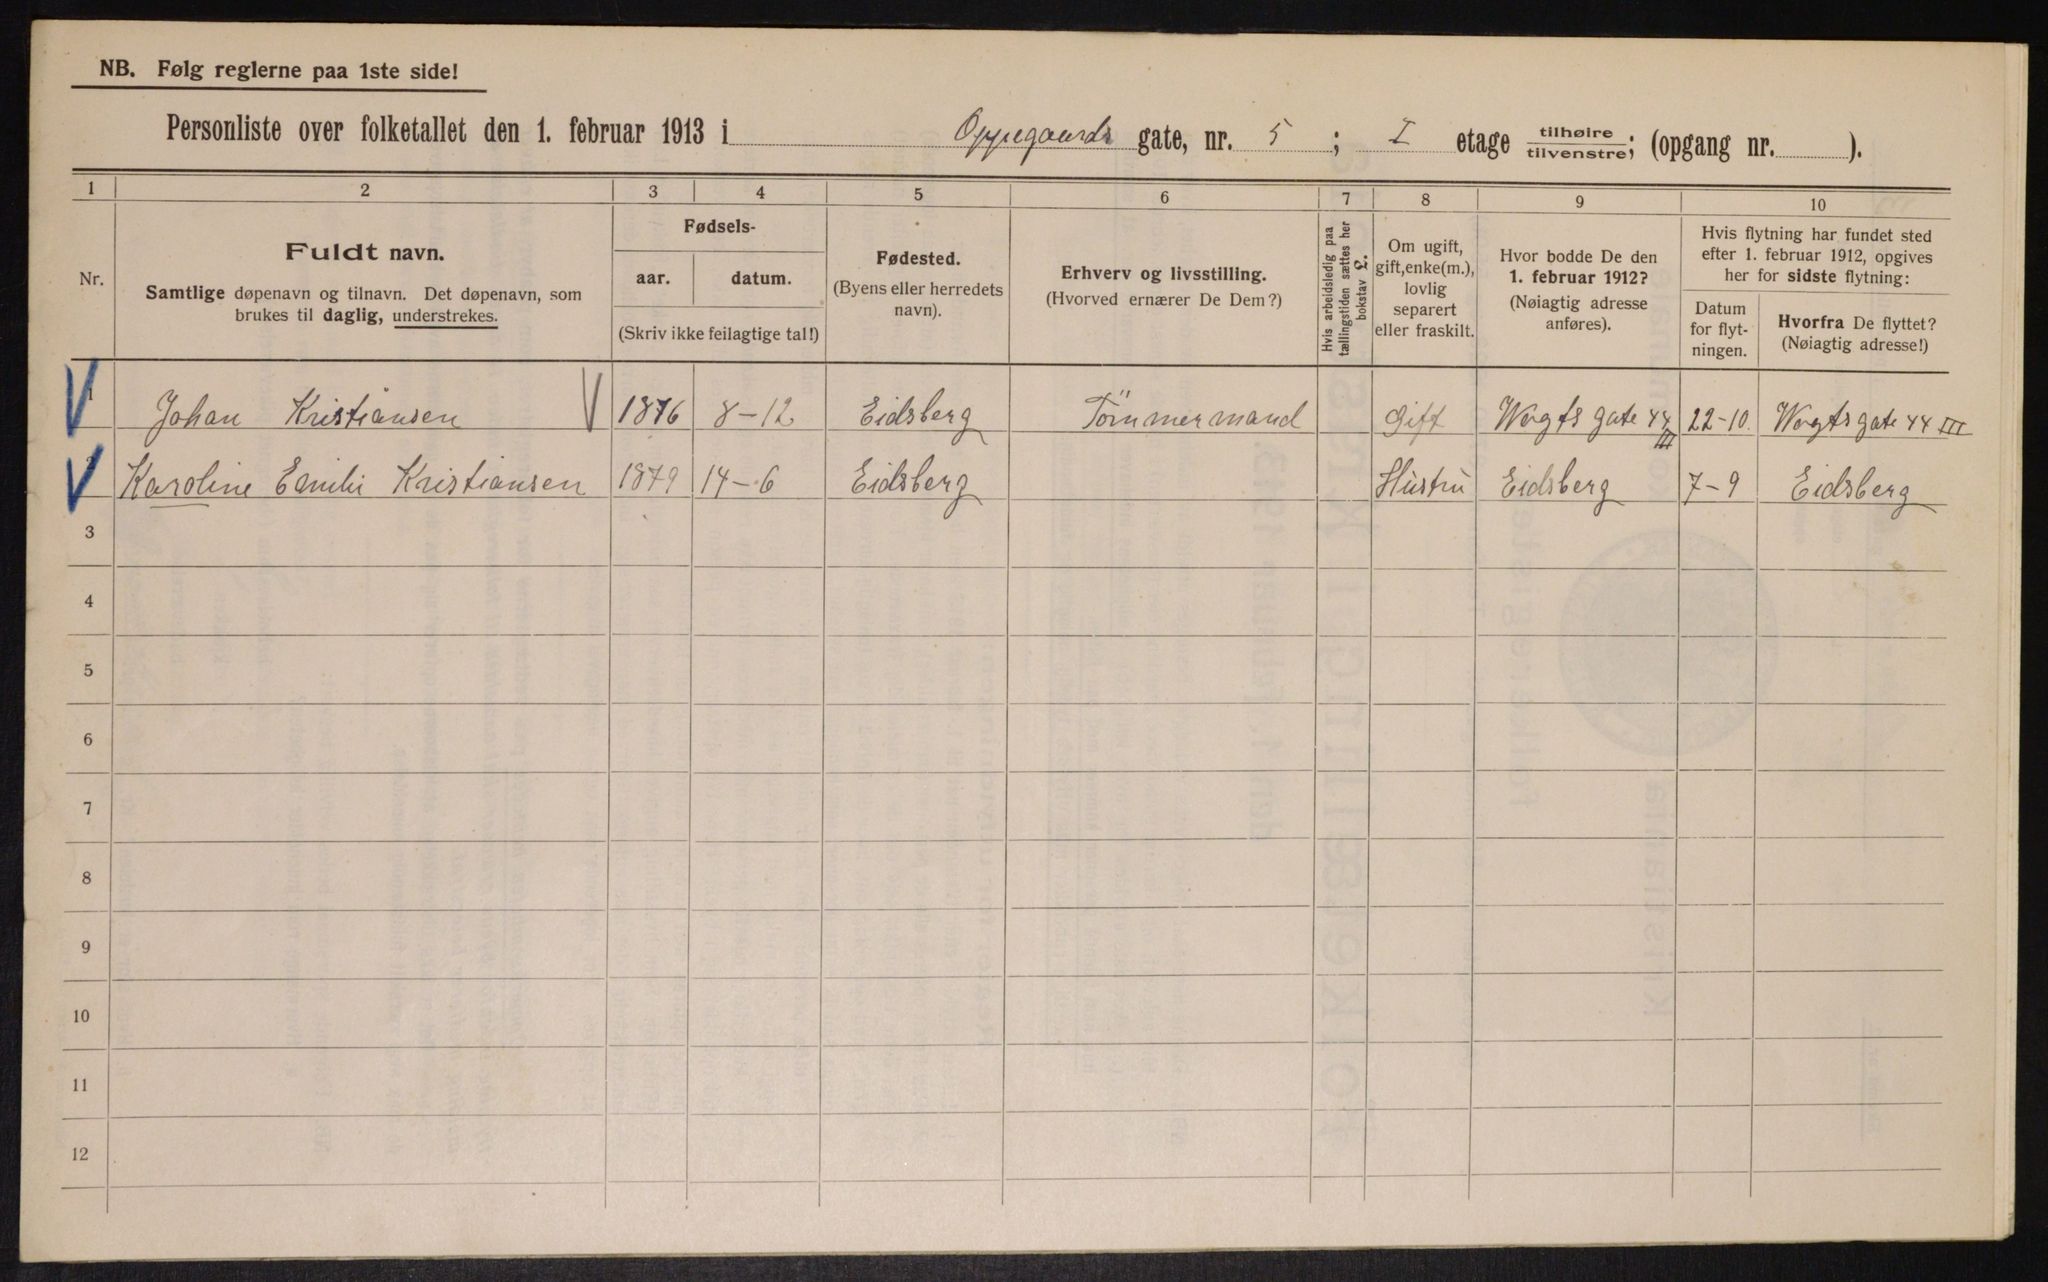 NB. Følg reglerne paa 1ste side!
Personliste over folketallet den 1. februar 1913 i Oppegaards gate, nr. 5 ; I etage tilhøire/tilvenstre; (opgang nr. ).
1 2 3 4 5 6 7 8 9 10
Nr.
Fuldt navn.
Samtlige døpenavn og tilnavn. Det døpenavn, som
brukes til daglig, understrekes.
Fødsels-
aar. datum.
(Skriv ikke feilagtige tal!)
Fødested.
(Byens eller herredets
navn).
Erhverv og livsstilling.
(Hvorved ernærer De Dem?)
Hvis arbeidsledig paa
tællingstiden sættes her
bokstav L.
Om ugift,
gift, enke(m.),
lovlig
separert
eller fraskilt.
Hvor bodde De den
1. februar 1912?
(Nøiagtig adresse
anføres).
Hvis flytning har fundet sted
efter 1. februar 1912, opgives
her for sidste flytning:
Datum
for flyt-
ningen.
Hvorfra De flyttet?
(Nøiagtig adresse!)
1 Johan Kristiansen 1876 8-12 Eidsberg Tömmermand Gift Wogts gate 44 III 22-10. Wogts gate 44 III
2 Karoline Emilie Kristiansen 1879 14-6 Eidsberg Hustru Eidsberg 7-9 Eidsberg
3
4
5
6
7
8
9
10
11
12